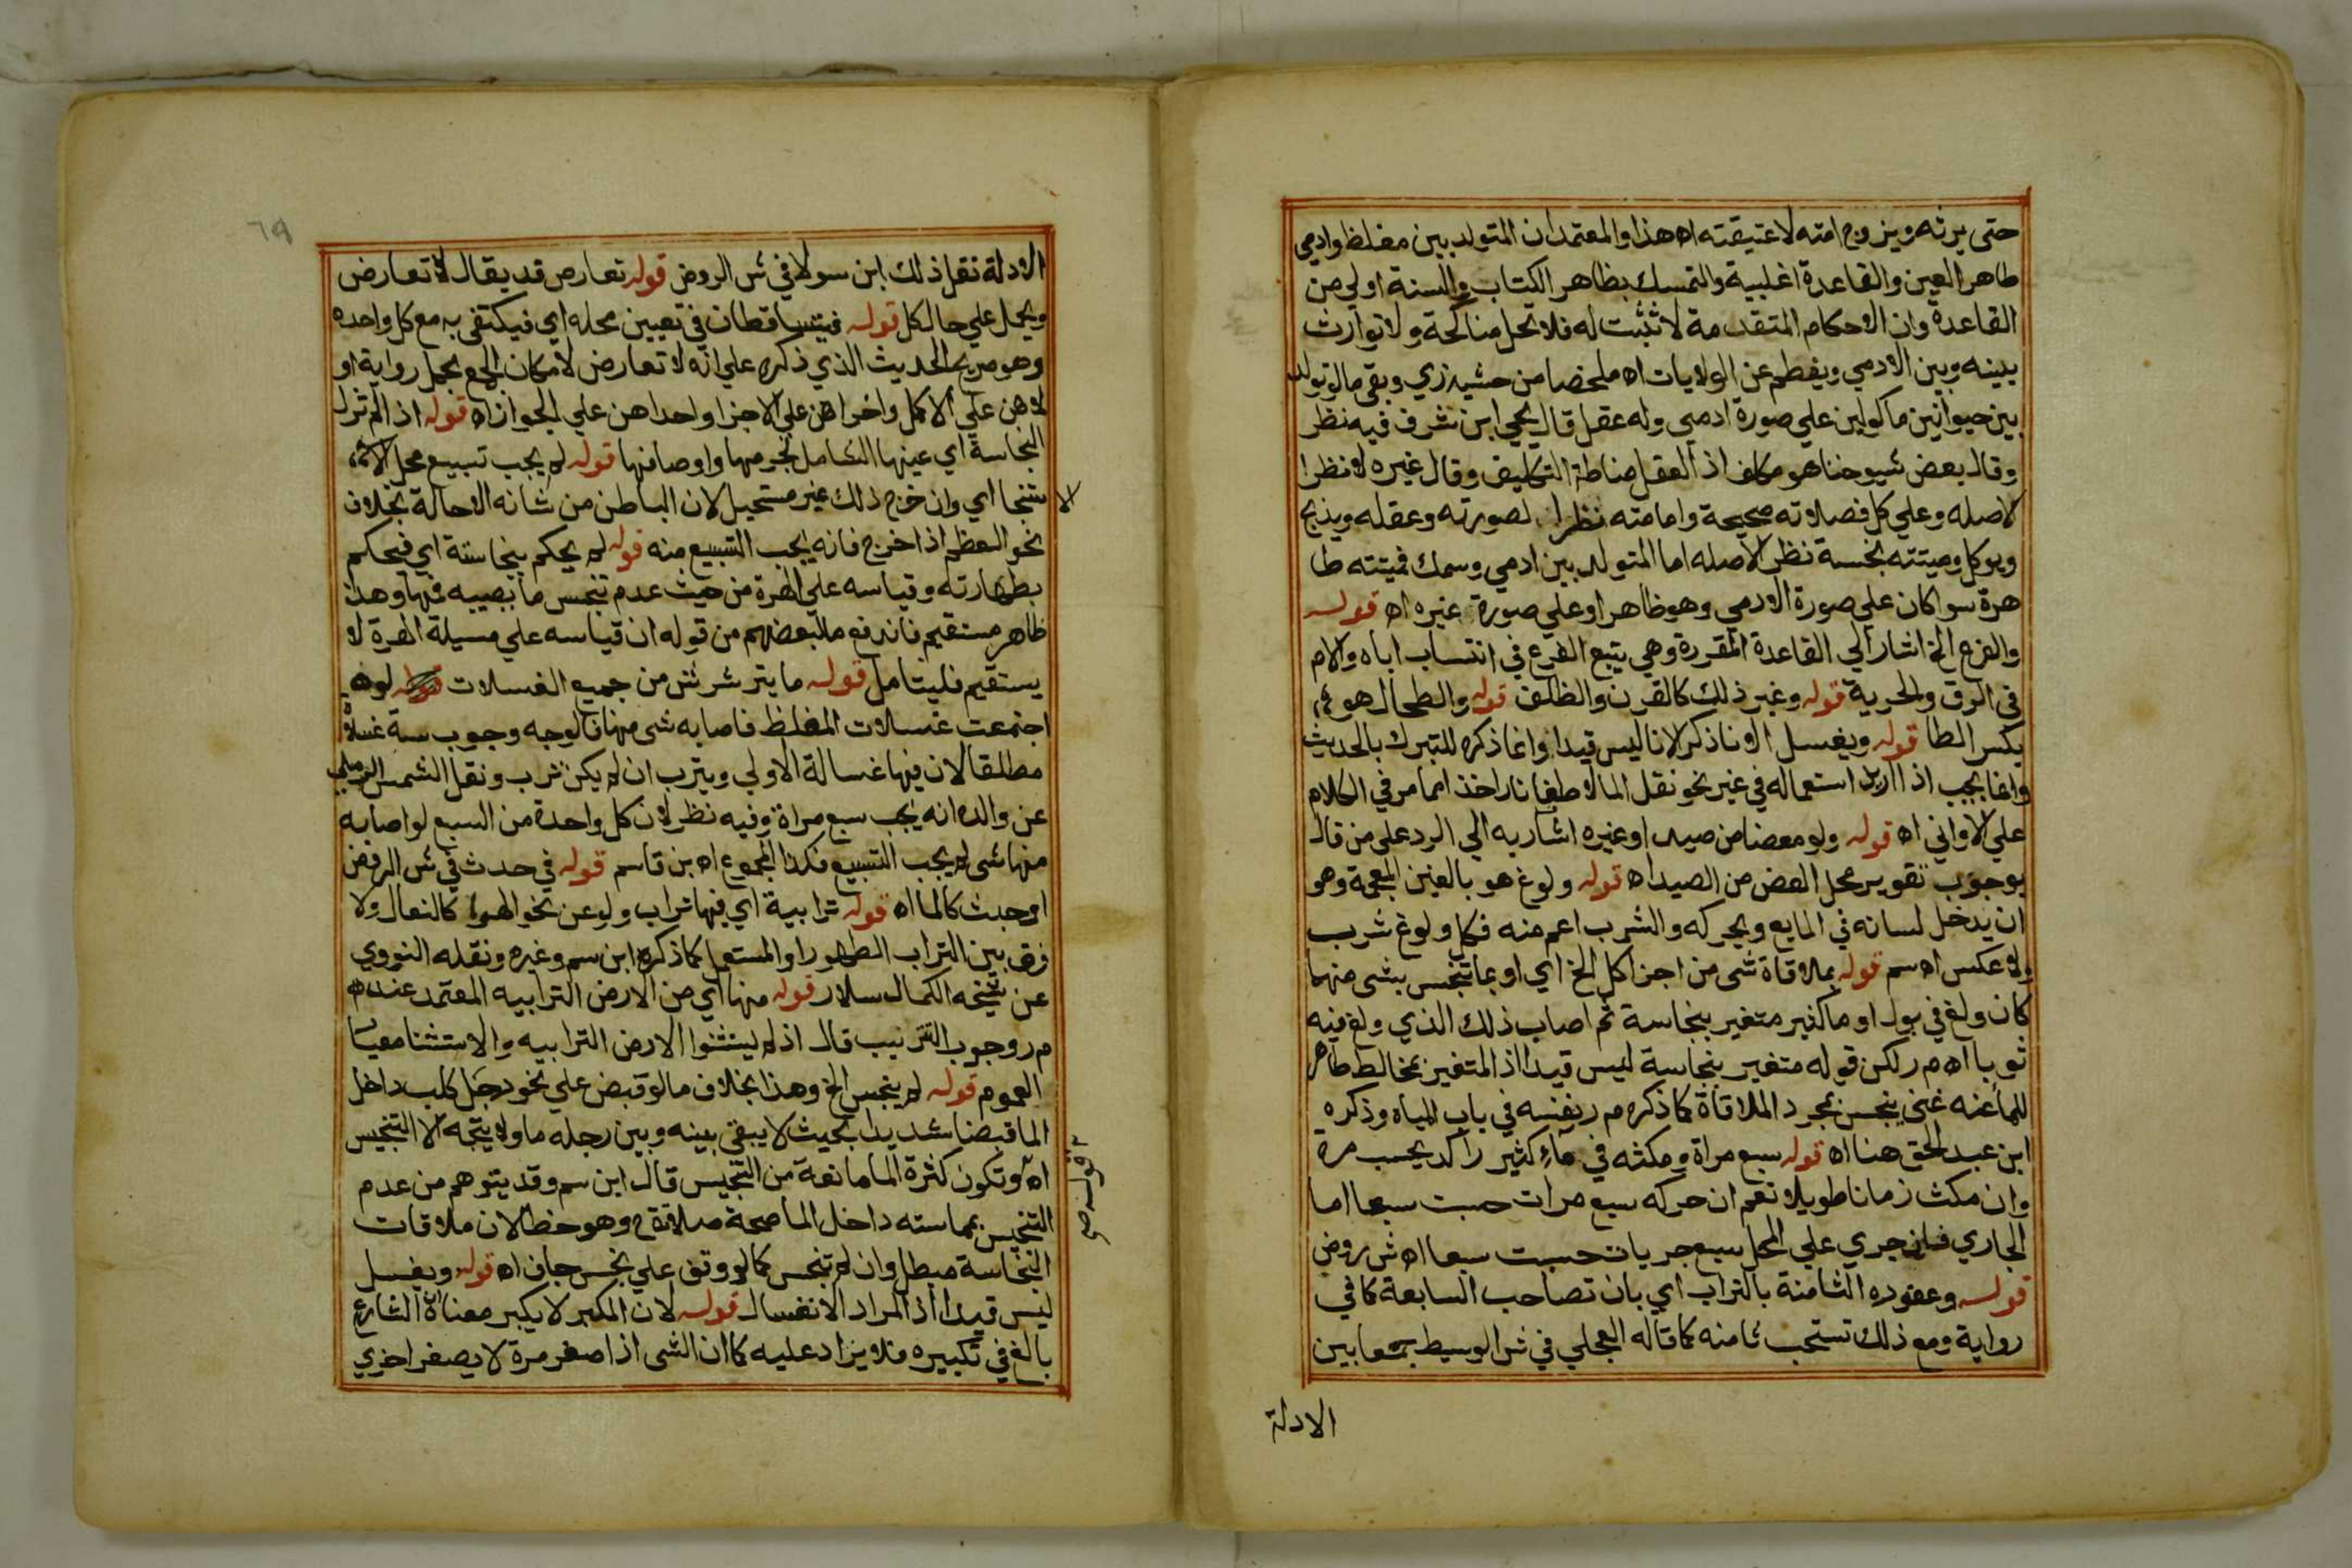 حتى يرثه ويزوج امته لا عتيقته اه هذا والمعتمد ان المتولد بين مغلظ وادمي
طاهر العين والقاعدة اغلبية والتمسك بظاهر الكتاب والسنة اولي من
القاعدة وان الاحكام المتقدمة لا تثبت له فلا تحل مناكحة ولا توارث
بينه وبين الادمي ويفطم عن الولايات اه ملخصا من حشيه زي وبقي مالو تولد
بين حيوانين ماكولين علي صورة ادمي وله عقل قال يحيي ابن شرف فيه نظر
وقال بعض شيوخنا هو مكلف اذ العقل مناطة التكليف وقال غيره لا نظرا
لاصله وعلي كل فصلاته صحيحة وامامته نظرا لصورته وعقله ويذبح
ويوكل وميتته نجسة نظر لاصله اما المتولد بين ادمي وسمك فميتته طا
هرة سوا كان علي صورة الادمي وهو ظاهر او علي صورة غيره اه قوله
والفرع الخ اشار الي القاعدة المقررة وهي يتبع الفرع في انتساب اباه والام
في الرق والحرية قوله وغير ذلك كالقرن والظلف قوله والطحال هو
بكسر الطا قوله ويغسل الانا ذكر الانا ليس قيدا وانما ذكره للتبرك بالحديث
وانما يجب اذا اريد استعماله في غير نحو نقل الما لا طفا نار اخذ امما مر في الكلام
علي الاواني اه قوله ولو معضا من صيد او غيره اشار به الي الرد علي من قال
بوجوب تقوير محل العض من الصيد اه قوله ولوغ هو بالغين المعجمة وهو
ان يدخل لسانه في المايع ويحركه والشرب اعم منه فكل ولوغ شرب
ولا عكس اه سم قوله بملاقاة شى من اجزا كل الخ اي او بما تنجس بشى منها
كان ولغ في بول او ما كثير متغير بنجاسة ثم اصاب ذلك الذي ولغ فيه
ثوبا اه م ر لكن قوله متغير بنجاسة ليس قيدا اذ المتغير بمخالط طاهر
للما عنه غنى ينجس بمجرد الملاقاة كما ذكره م ر بنفسه في باب المياه وذكره
ابن عبد الحق هنا اه قوله سبع مراة ومكثه في ماء كثير راكد يحسب مرة
وان مكث زمانا طويلا نعم ان حركه سبع مرات حسبت سبعا اما
الجاري فان جري علي المحل سبع جريات حسبت سبعا اه ش روض
قوله وعفوده الثامنة بالتراب اي بان تصاحب السابعة كما في
رواية ومع ذلك تستحب ثامنه كما قاله العجلي في ش الوسيط جمعا بين
الادلة
٦٩
الادلة نقل ذلك ابن سولا في ش الروض قوله تعارض قد يقال لا تعارض
ويحمل علي حال كل قوله فيتساقطان في تعيين محله اي فيكتفى به مع كل واحده
وهو صريح الحديث الذي ذكره علي انه لا تعارض لامكان الجمع بحمل رواية او
لاهن علي الاكمل واخراهن علي الاجزا واحداهن علي الجواز اه قوله اذ الم تزل
النجاسة اي عينها الشامل لجرمها واوصافها قوله لم يجب تسبيع محل الا
ستنجا اي وان خرج ذلك غير مستحيل لان الباطن من شانه الاحالة بخلاف
الا
نحو العظم اذا خرج فانه يجب التسبيع منه قوله لم يحكم بنجاسته اي فيحكم
بطهارته وقياسه علي الهرة من حيث عدم تنجس ما يصيبه فمها وهذا
ظاهر مستقيم فاندفع ما لبعضهم من قوله ان قياسه علي مسيلة الهرة لا
يستقيم فليتامل قوله ما يترشرش من جميع الغسلات لو
اجتمعت غسلات المغلظ فاصابه شى منها فالوجه وجوب ستة غسلاة
مطلقا لان فيها غسالة الاولي ويترب ان لم يكن ترب ونقل الشمس الرملي
عن والده انه يجب سبع مراة وفيه نظر لان كل واحدة من السبع لو اصابه
منها شى لم يجب التسبيع فكذا المجموع اه بن قاسم قوله في حدث في ش الروض
او حدث كالما اه قوله ترابية اي فيها تراب ولو عن نحو الهوا كالنعال ولا
فرق بين التراب الطهور او المستعمل كما ذكره ابن سم وغيره ونقله النووي
عن شيخه الكمال سلار قوله منها اي من الارض الترابيه المعتمد عنده
م ر وجوب التتريب قال اذ لم يستثنوا الارض الترابيه والاستثنا معيار
العموم قوله لم ينجس الخ وهذا بخلاف مالو قبض علي نحو رجل كلب داخل
الما قبضا شديدا بحيث لا يبقى بينه وبين رجله ما ولا يتجه الا التنجيس
اه وتكون كثرة الما مانعة من التنجيس قال ابن سم وقد يتوهم من عدم
التنجيس بمماسته داخل الما صحة صلاته ح وهو خطا لان ملاقات
النجاسة مبطل وان لم تنجس كما لو وقف علي نجس جاف اه قوله ويغسل
ليس قيدا اذ المراد الانغسال قوله لان المكبر لا يكبر معناه ان الشارع
بالغ في تكبيره فلا يزاد عليه كما ان الشى اذا صغر مرة لا يصغر اخري
قوله صح